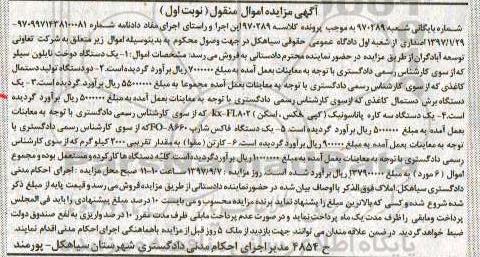 آگهی مزایده اموال منقول ( نوبت اول )
شماره بایگانی شعبه ۹۷۰۲۸۹ به موجب پرونده کلاسه ۹۷۰۲۸۹ این اجرا و راستای اجرای مفاد دادنامه شماره ۹۷۰۹۹۷۱۴۳۸۱۰۰۰۸۱
۱۳۹۷/۱/۲۹ اصداری از شعبه اول دادگاه عمومی حقوقی سیاهکل در جهت وصول محکوم به بدینوسیله اموال زیر متعلق به شرکت تعاونی
توسعه آبادگران از طریق مزایده در حضور نماینده محترم دادستانی به فروش می رسد: مشخصات اموال: ۱- یک دستگاه دوخت نایلون سیلر
که از سوی کارشناس رسمی دادگستری با توجه به معاینات بعمل آمده به مبلغ ۷۰۰۰۰۰۰ ریال برآورد گردیده است. ۲- دو دستگاه تولید دستمال
کاغذی که از سوی کارشناس رسمی دادگستری با توجه به معاینات بعمل آمده مجموعا به مبلغ ۵۵۰۰۰۰۰۰ ریال برآورد گردیده است ۳- یک
دستگاه برش دستمال کاغذی که از سوی کارشناس رسمی دادگستری با توجه به معاینات بعمل آمده به مبلغ ۵۰۰۰۰۰۰ ریال برآورد گردیده
است. ۴- یک دستگاه سه کاره پاناسونیک (کپی فکس، اسکن) kx-FLA۸۰۲ که از سوی کارشناس رسمی دادگستری با توجه به معاینات
بعمل آمده به مبلغ ۵۰۰۰۰۰۰ ریال برآورد گردیده است ۵- یک دستگاه فاکس شارپ FO-A۶۶۰ که از سوی کارشناس رسمی دادگستری با
توجه به معاینات بعمل آمده به مبلغ ۹۰۰۰۰۰ ریال برآورد گردیده است. ۶- کارتن (مقوا) به مقدار تقریبی ۲۰۰۰ کیلو گرم که از سوی کارشناس
رسمی دادگستری با توجه به معاینات بعمل آمده به مبلغ ریال برآورد گردیده است. کلیه دستگاه ها کارکرده و مستعمل بوده و مجموع
اموال (۶ مورد) به مبلغ ۱۳۷۹۰۰۰۰۰ ریال برآورد شده است. روز مزایده : ۱۳۹۷/۹/۷ ساعت ۱۰-۱۱ صبح محل مزایده: اجرای احکام مدنی
دادگستری سیاهکل. املاک فوق الذکر با اوصاف بیان شده در حضور نماینده دادستانی از طریق مزایده فروش می رسد و قیمت پایه از مبلغ ذکر
شده شروع شده و کسی که بالاترین مبلغ را پیشنهاد نماید برنده مزایده محسوب و می بایست ۱۰ درصد مبلغ پیشنهادی را باید فی المجلس
پرداخت و مابقی را ظرف مدت یک ماه پرداخت نماید و در صورت عدم پرداخت مابقی ظرف مدت مقرر ۱۰ درصد واریزی به نفع صندوق دولت
ضبط خواهد گردید. در ضمن علاقه مندان می توانند جهت بازدید از ملک ۵ روز قبل از مزایده با هماهنگی اجرای احکام مدنی اقدام نمایند.
ح ۴۸۵۴ مدیر اجرای احکام مدنی دادگستری شهرستان سیاهکل- پورمند